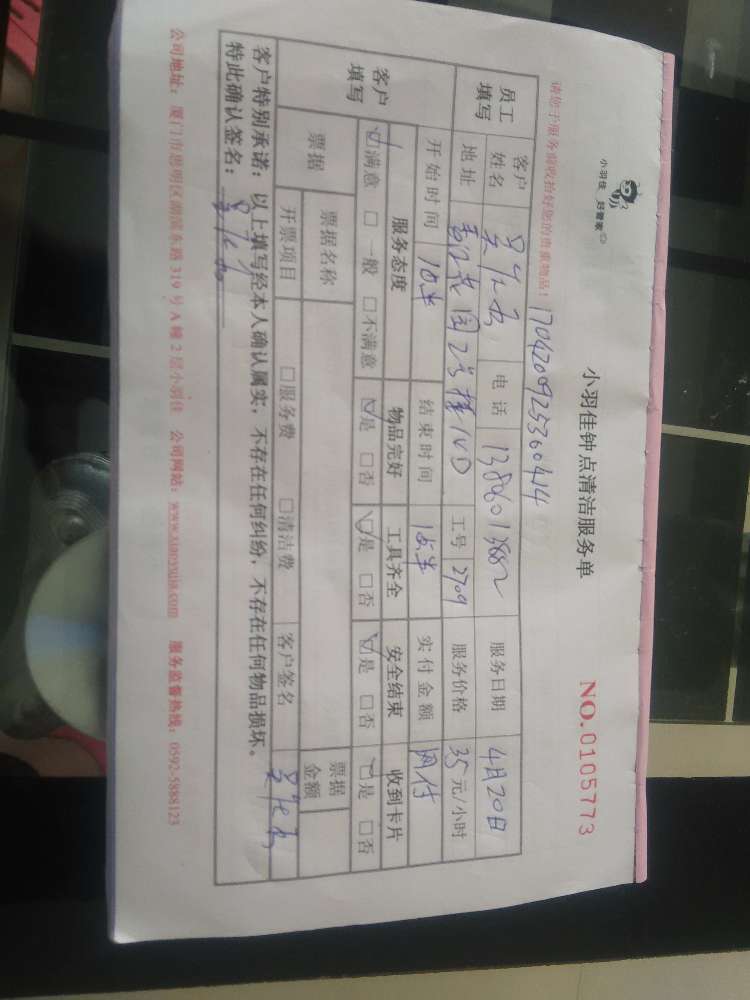 小羽佳 好管家
小羽佳钟点清洁服务单
NO.0105773
请您于服务前收拾好您的贵重物品！ 1704200925360414
员工填写 客户姓名 电话 服务日期 4月20日
地址 2号楼11D 工号 2709 服务价格 35元/小时
客户填写 开始时间 10半 结束时间 实付金额 网付
服务态度 物品完好 工具齐全 安全结束 收到卡片
☑满意 □一般 □不满意 ☑是 □否 ☑是 □否 ☑是 □否 ☑是 □否
票据 票据名称 票据金额
开票项目 □服务费 □清洁费 客户签名
客户特别承诺：以上填写经本人确认属实，不存在任何纠纷，不存在任何物品损坏。
特此确认签名：
公司地址：厦门市思明区湖滨东路319号A幢2层小羽佳 公司网站：www.xiaoyujia.com 服务监督热线：0592-5888123